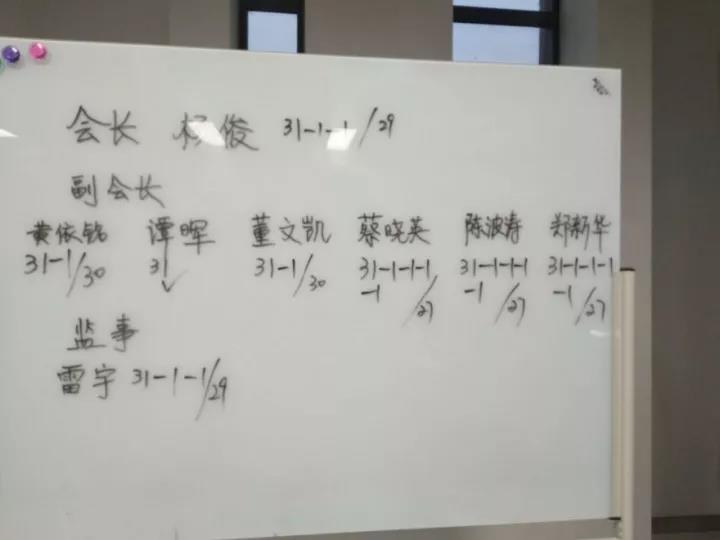 会长 杨俊 31-1-1/29
副会长
黄依铭 谭晖 董文凯 蔡晓英 陈波涛 郑新华
31-1/30 31 31-1/30 31-1-1-1 31-1-1-1 31-1-1-1
-1/27 -1/27 -1/27
监事
雷宇 31-1-1/29